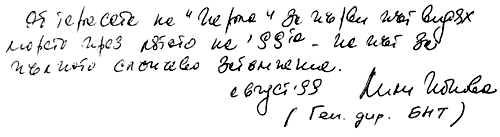 От терасата на "Перла" за първи път видях
морето през лятото на '99та - на път за
пълното слънчево затъмнение.
август '99 Лили Попова
(Ген. дир. БНТ)